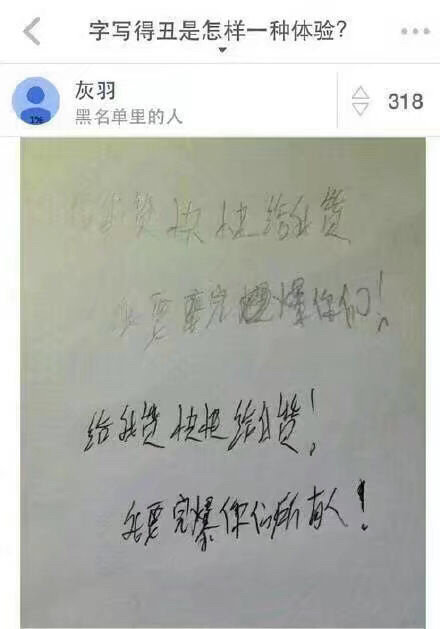 字写得丑是怎样一种体验?
灰羽
黑名单里的人
318
给我赞快快给我赞
我要完爆你们!
给我赞快快给我赞!
我要完爆你们所有人!